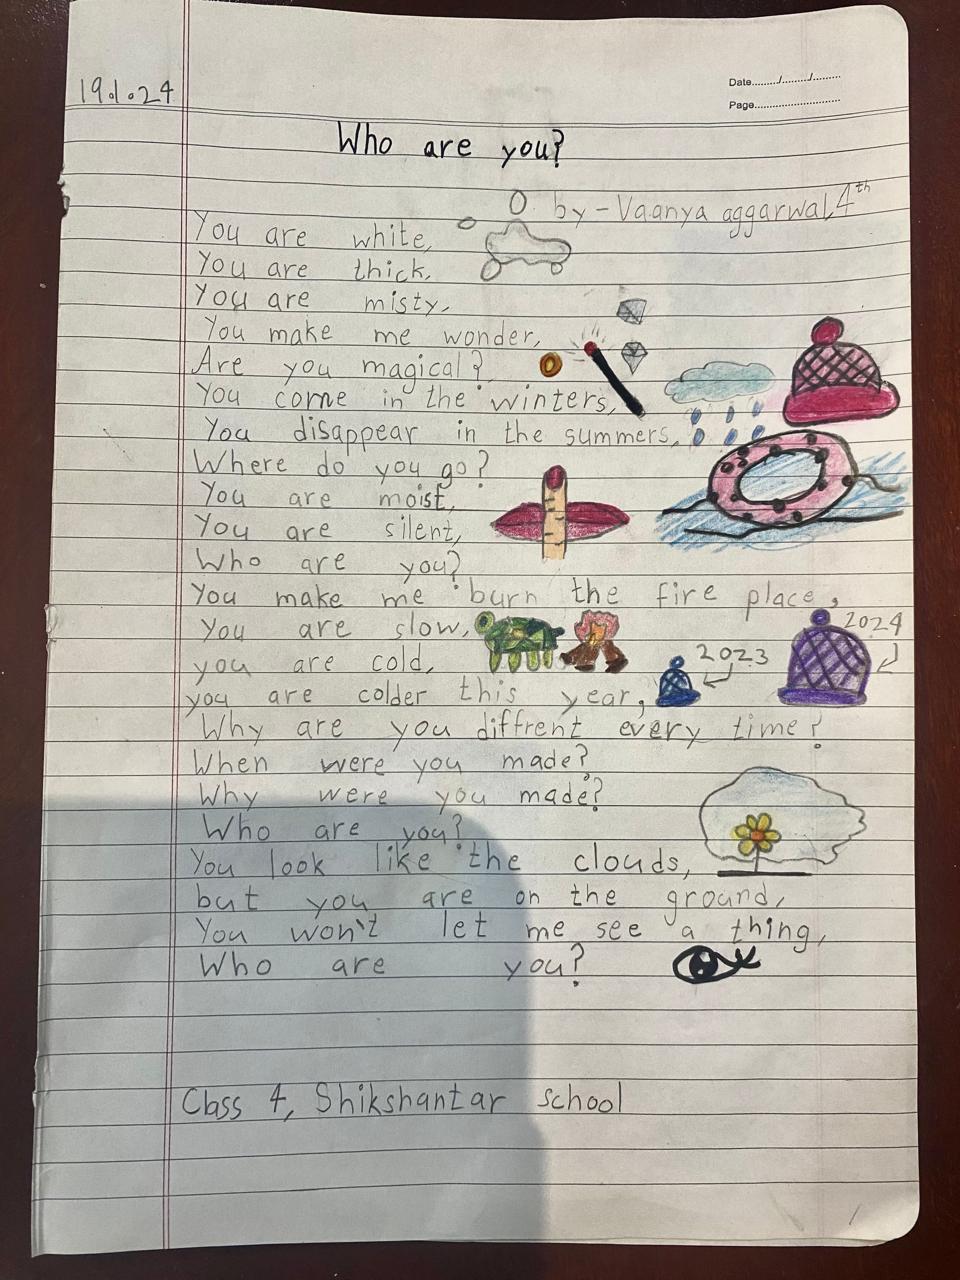 19.1.24
Date........./........./.........
Page............................
Who are you?
by - Vaanya aggarwal, 4th
You are white,
You are thick,
You are misty,
You make me wonder,
Are you magical?
You come in the winters,
You disappear in the summers,
Where do you go?
You are moist,
You are silent,
Who are you?
You make me burn the fire place,
You are slow,
2024
you are cold,
2023
you are colder this year,
Why are you diffrent every time?
When were you made?
Why were you made?
Who are you?
You look like the clouds,
but you are on the ground,
You won't let me see a thing,
Who are you?
Class 4, Shikshantar school